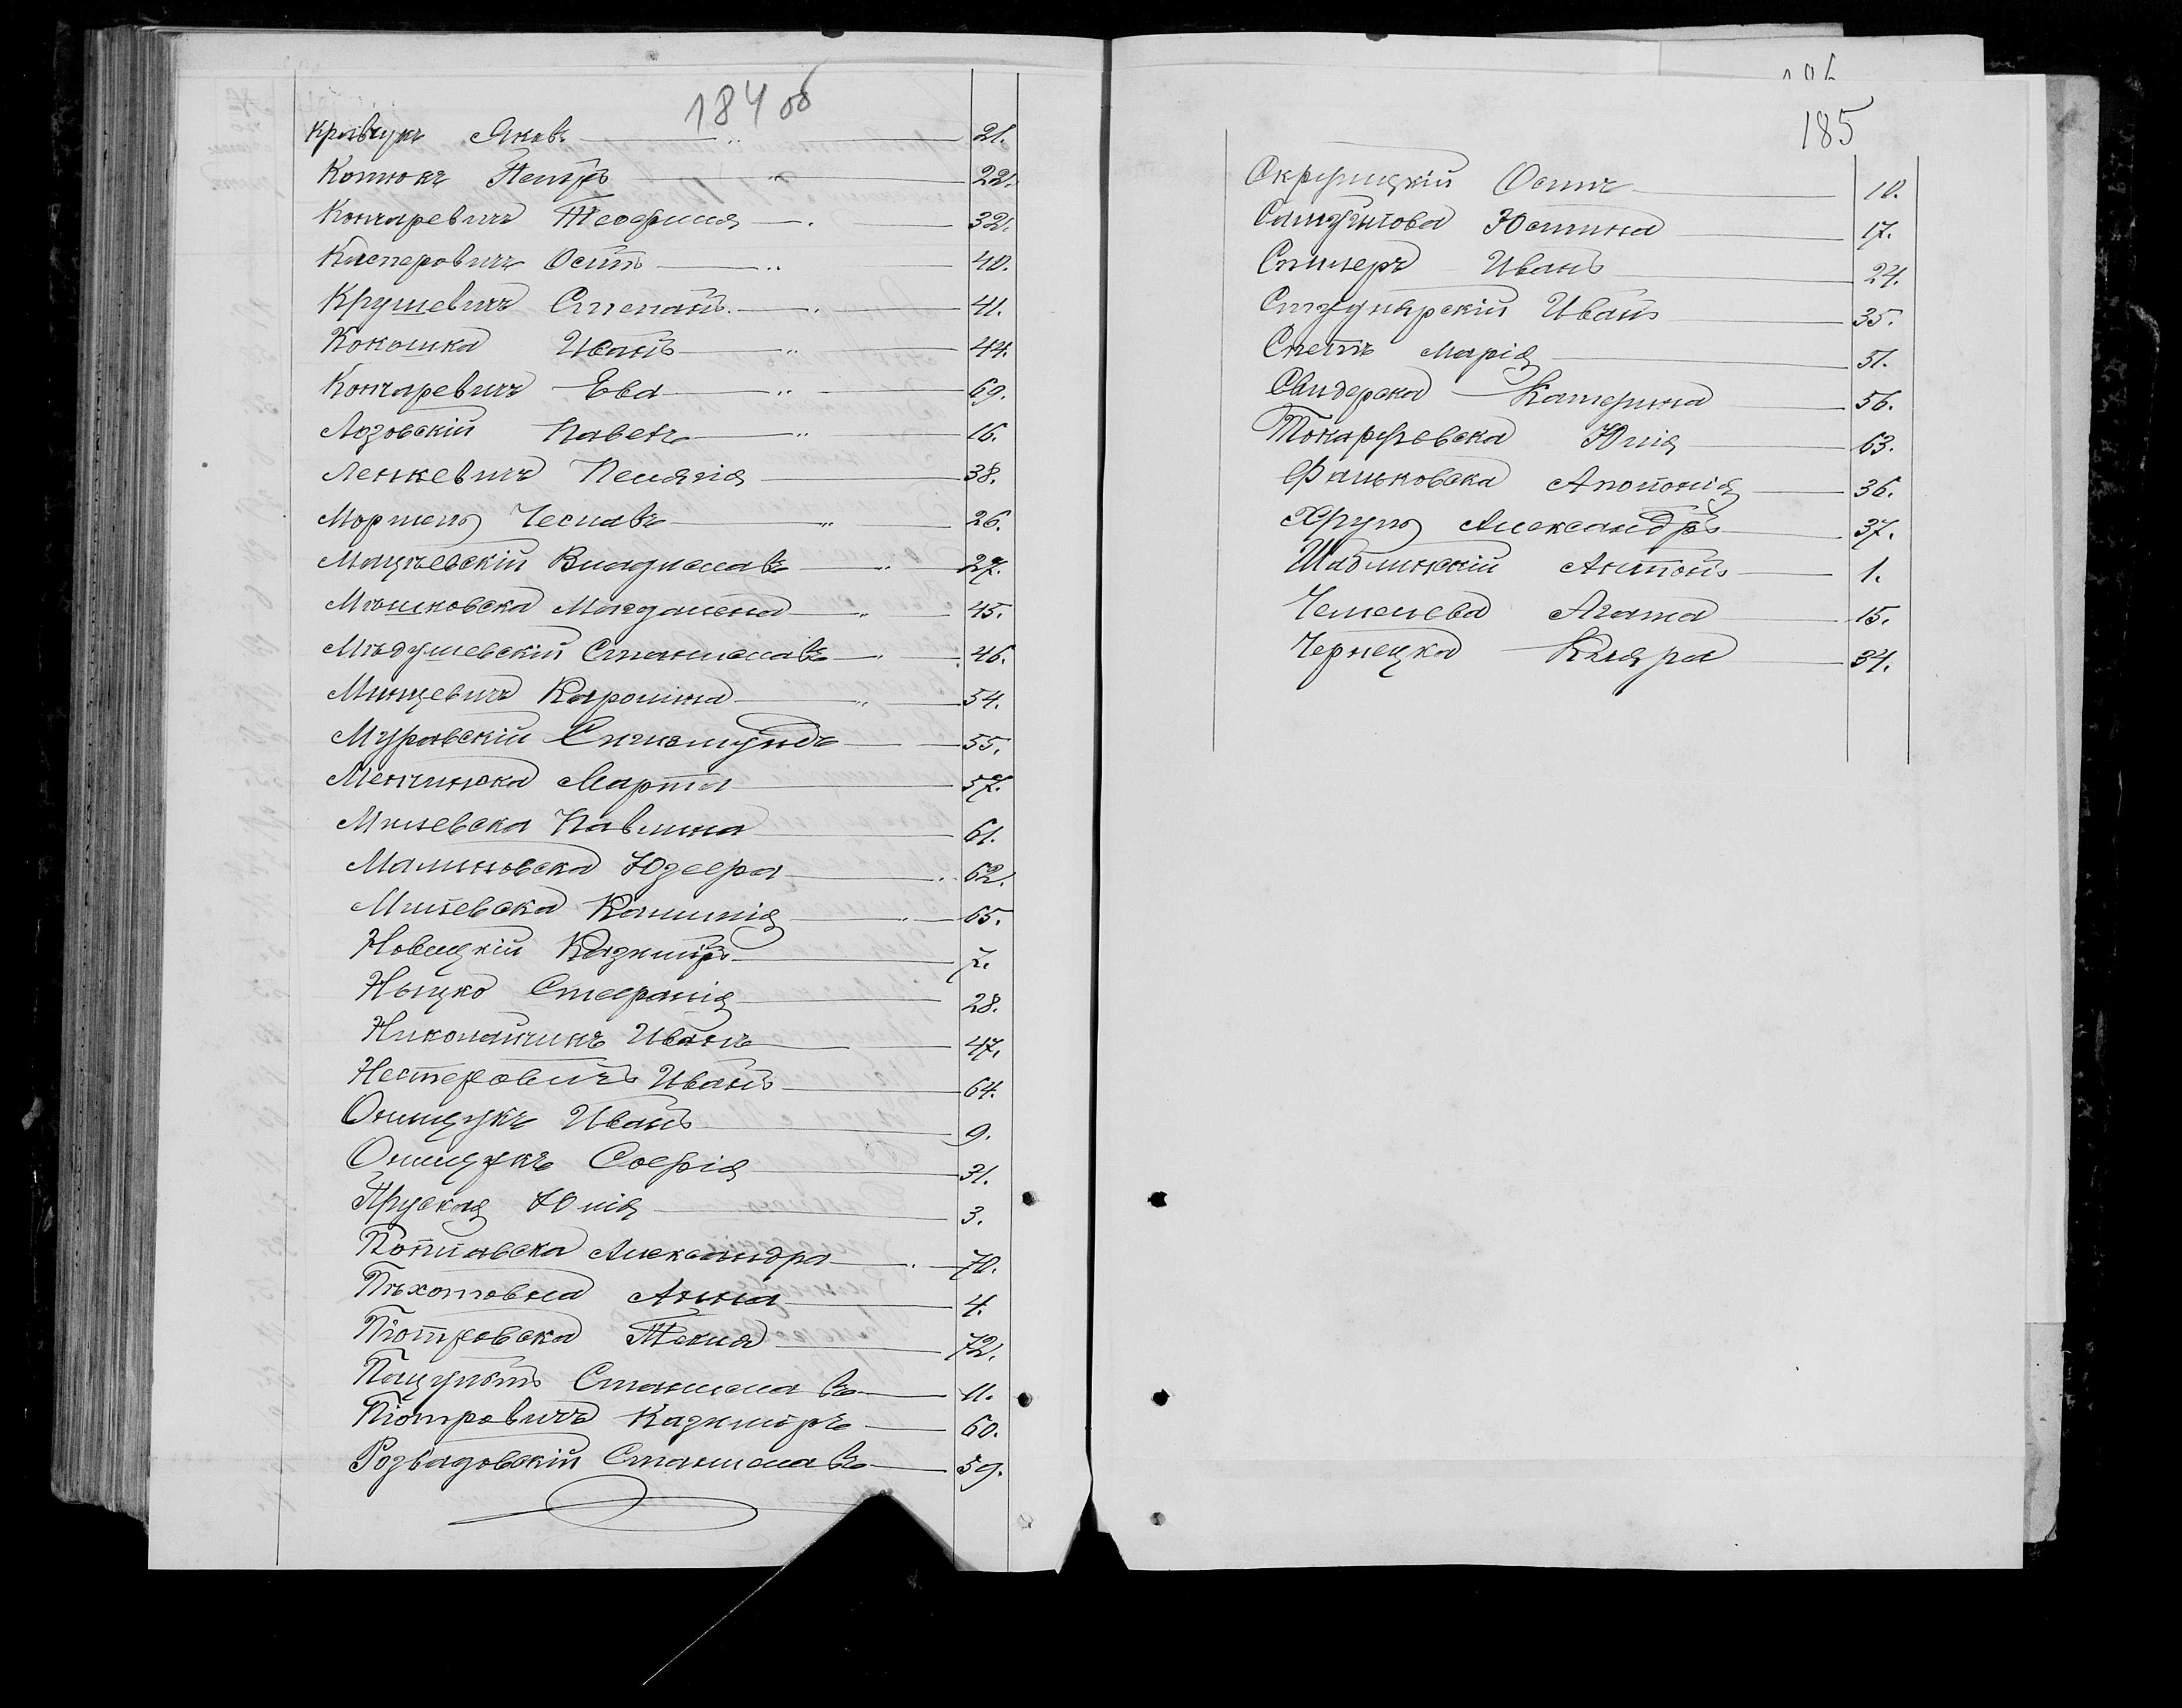 184 об
Кравчукъ Яковъ " 21.
Котюкъ Петръ " 22.
Кончаревичъ Теофиля . 32.
Касперовичъ Осипъ " 40.
Крушевичъ Степанъ . 41.
Кокошка Иванъ " 44.
Кончаревичъ Ева " 69.
Лозовскій Павелъ " 16.
Ленкевичъ Пелагія 38.
Чеславъ " 26.
Владиславъ " 27.
Мюшковска Магдалена " 45.
Мѣдушевскій Станиславъ " 46.
Минцевичъ Каролина " 54.
Муравскій Сигизмундъ 55.
Марта 57.
Милевска Павлина 61.
Малиновска Юзефа . 62.
Милевска Камилія " 65.
Новицкій Казиміръ 7.
Ныцко Стефанія 28.
Николайчикъ Иванъ 47.
Нестеровичъ Иванъ 64.
Онищукъ Иванъ 9.
Онищукъ Софія 31.
Пруская Юлія 3.
Александра . 70.
Пѣхотовна Анна 4.
Піотровска Текля 72.
Станиславъ 11.
Піотровичъ Казиміръ 60.
Розвадовскій Станиславъ 59.
185
Скржицкій Осипъ 10.
Юстина 17.
Иванъ 24.
Стаднярскій Иванъ 35.
Марія 51.
Свидерска Катерина 56.
Токаржевска Юлія 63.
Фальковска Аполонія 36.
Хруль Александръ 37.
Шаблинскій Антонъ 1.
Агата 15.
Чернецка Кляра 34.